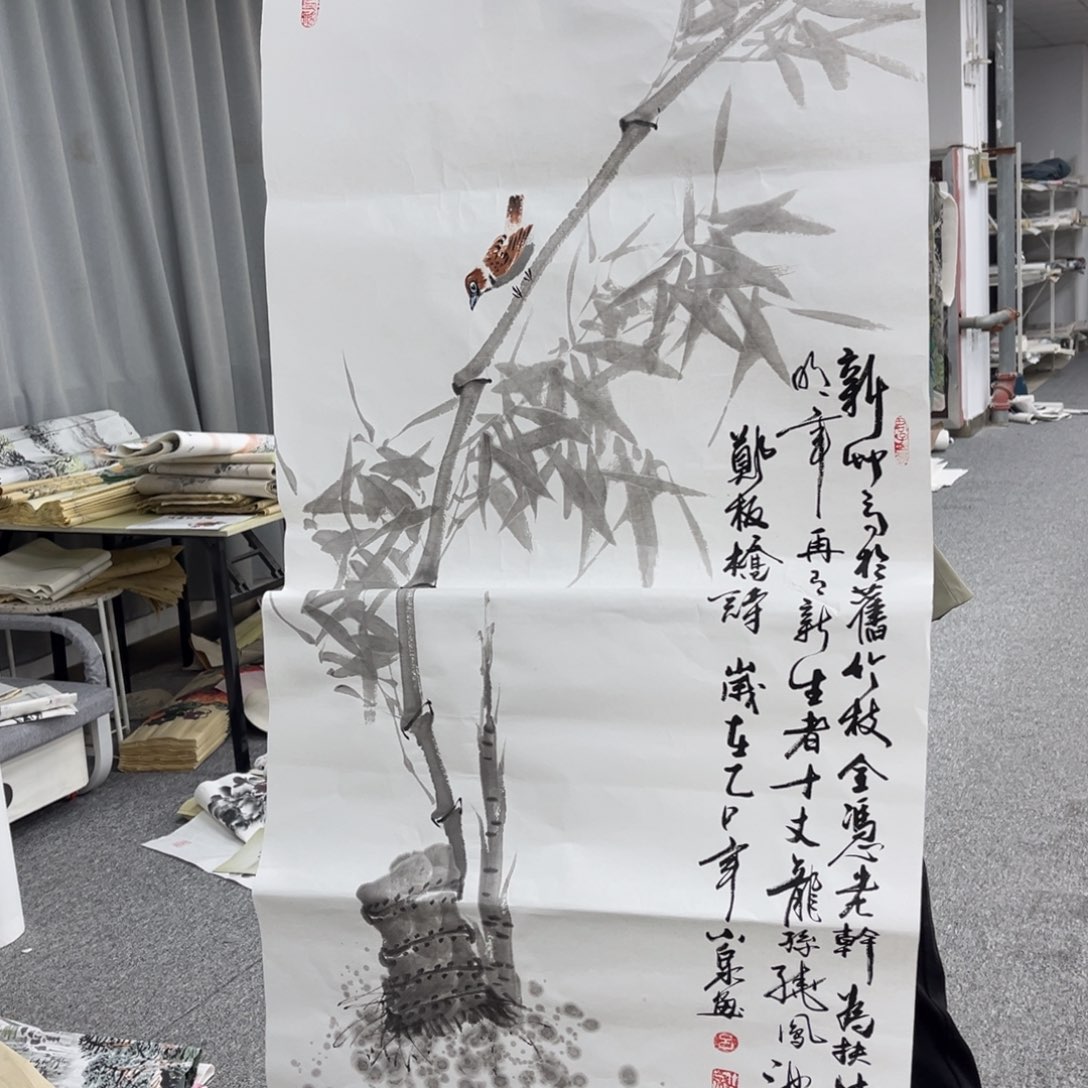 新竹高於舊竹枝全憑老幹為扶持
明年再有新生者十丈龍孫繞鳳池
鄭板橋詩 歲在乙巳年 小泉